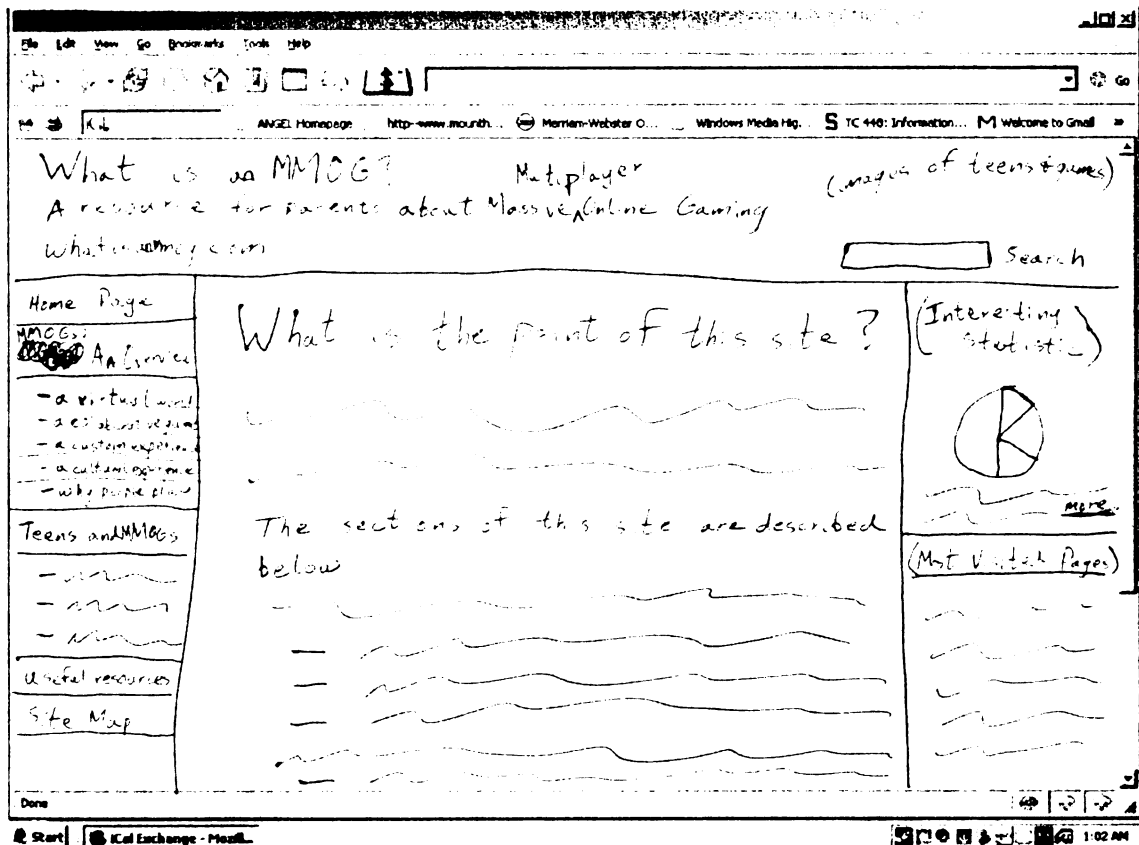 File Edit View Go Bookmarks Tools Help
Go
ANGEL Homepage http--www.mounth... Merriam-Webster O... Windows Media Hig... TC 448: Information... Welcome to Gmail »
What is an MMOG?
(images of teens & games)
Multiplayer
A resource for parents about Massive Online Gaming
Search
Home Page
MMOGs:
- a virtual world
- a custom experience
- a cultural experience
- why people play
Teens and MMOGs
Useful resources
Site Map
What is the point of this site?
The sections of this site are described
below
(Interesting
Statistic)
more
(Most Visited Pages)
Done
Start iCal Exchange - Mozill...
1:02 AM